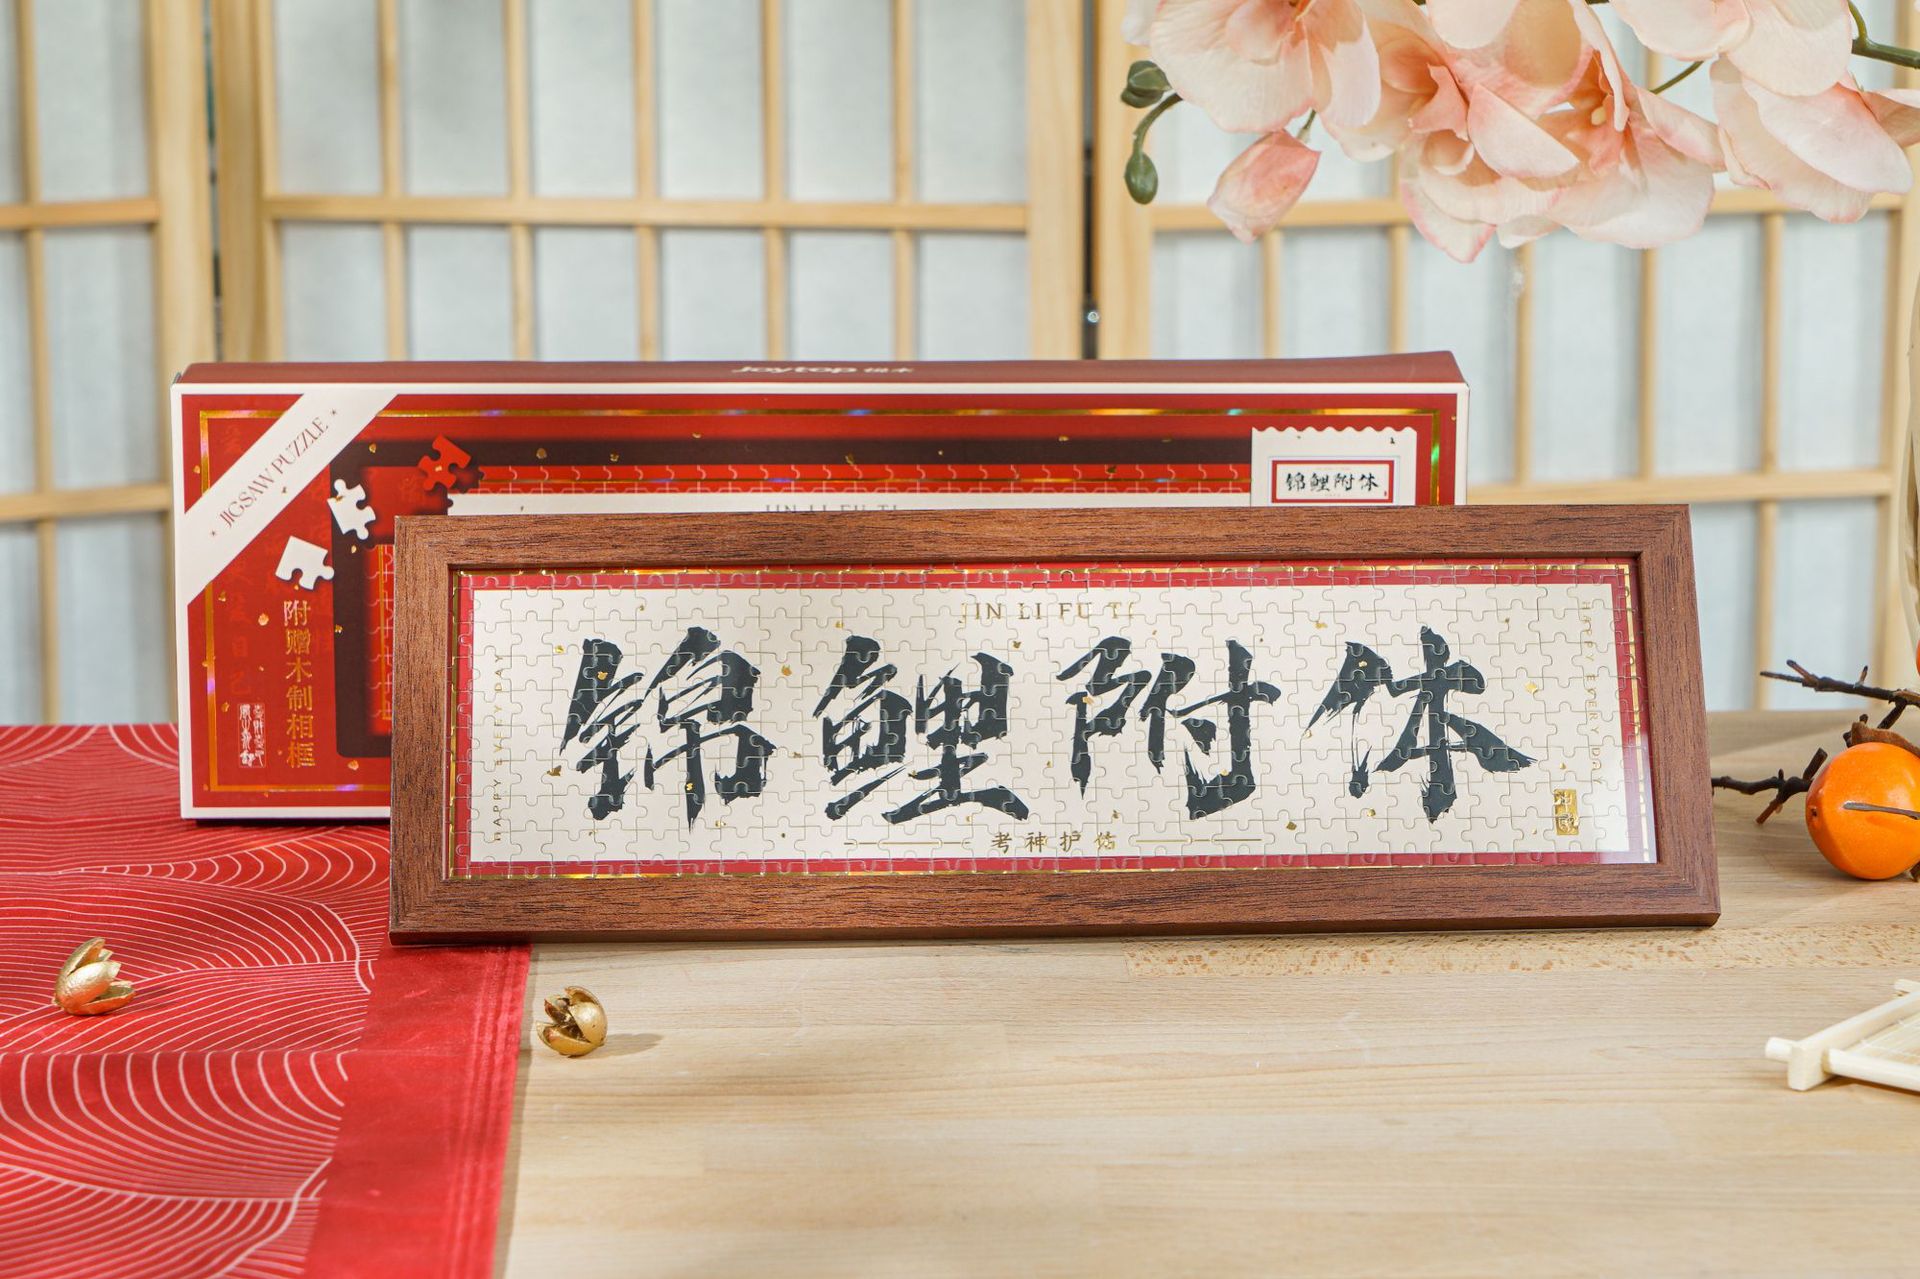 Joytop
JIGSAW PUZZLE
锦鲤附体
JIN LI FU TI
附赠木制相框
JIN LI FU TI
锦鲤附体
考神护佑
HAPPY EVERY DAY
HAPPY EVERY DAY